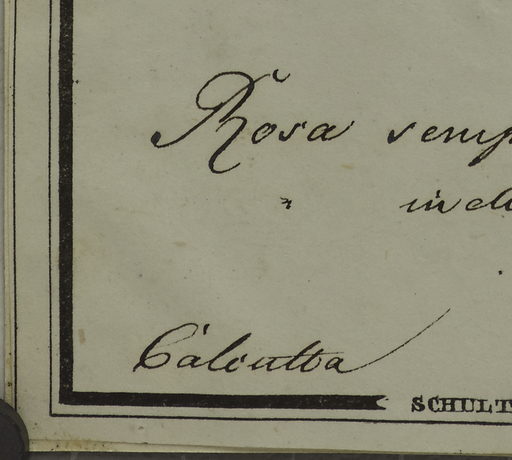 Rosa semp
" indi
Calcutta
SCHULT